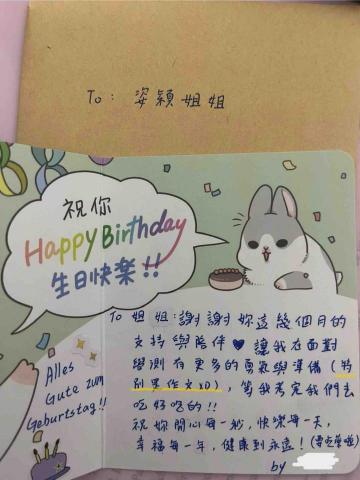 To: 姿穎姐姐
祝你
Happy Birthday
生日快樂!!
To 姐姐:謝謝妳這幾個月的
支持與陪伴♥讓我在面對
學測有更多的勇氣與準備(特
別是作文XD),等我考完我們去
吃好吃的!!
祝妳開心每一秒,快樂每一天,
幸福每一年,健康到永遠!(要吃藥啦)
by
Alles
Gute zum
Geburtstag!!